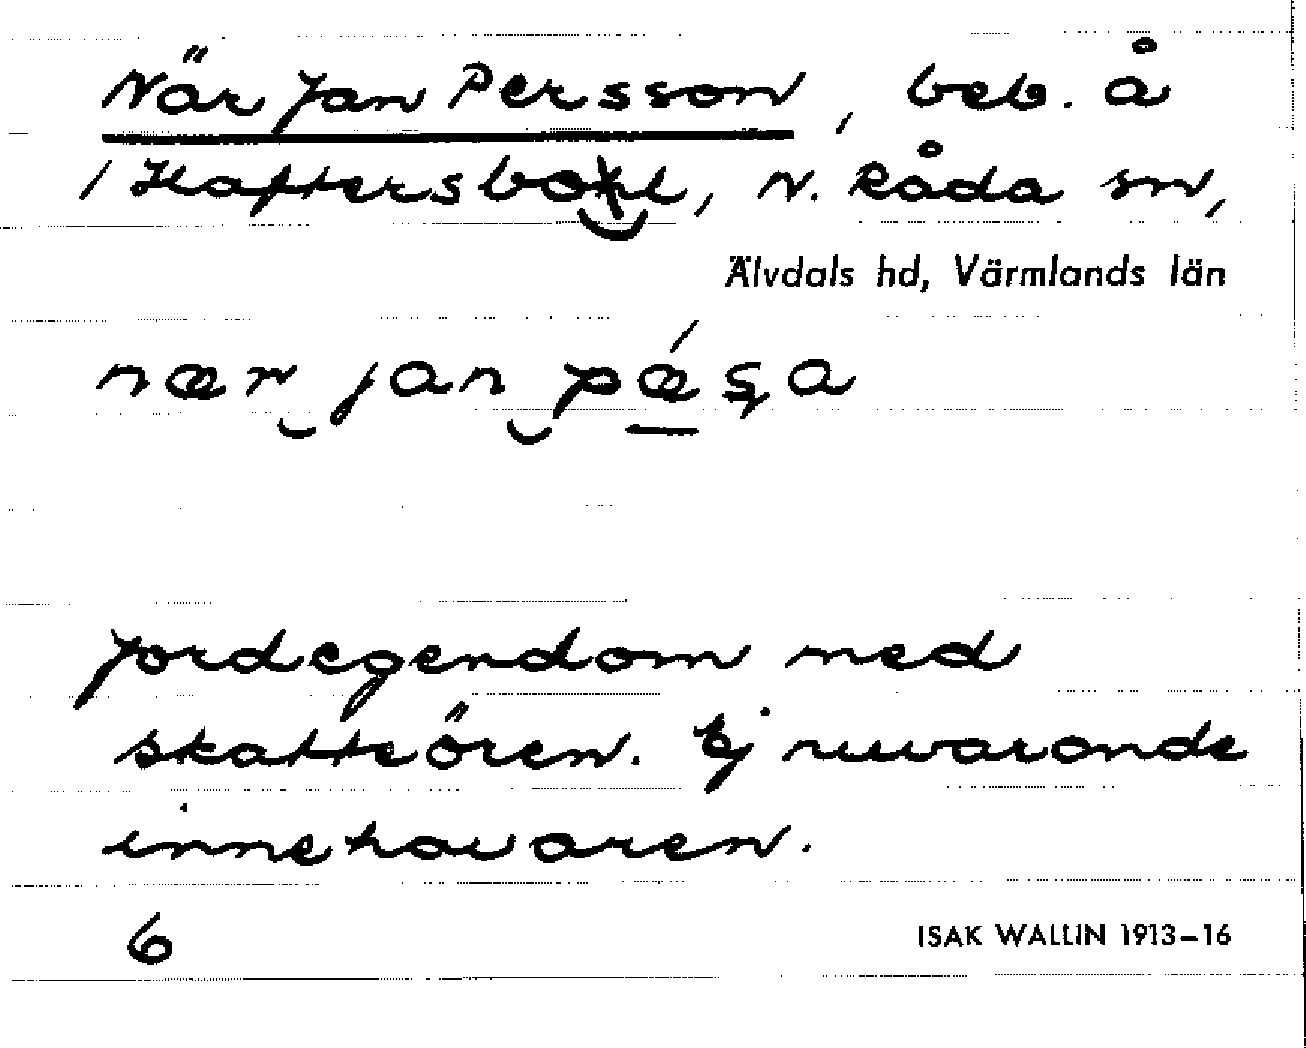 När Jan Persson, beb. å
1 Haftersbol, N. Råda sn,
Älvdals hd, Värmlands län
nær jan pǽʂa
Jordegendom med
skatteören. Ej nuvarande
innehavaren.
6 ISAK WALLIN 1913–16